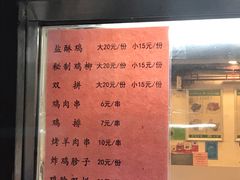 盐酥鸡 大20元/份 小15元/份
秘制鸡柳 大20元/份 小15元/份
双拼 大20元/份 小15元/份
鸡肉串 6元/串
鸡排 7元/串
烤羊肉串 10元/串
炸鸡胗子 20元/份